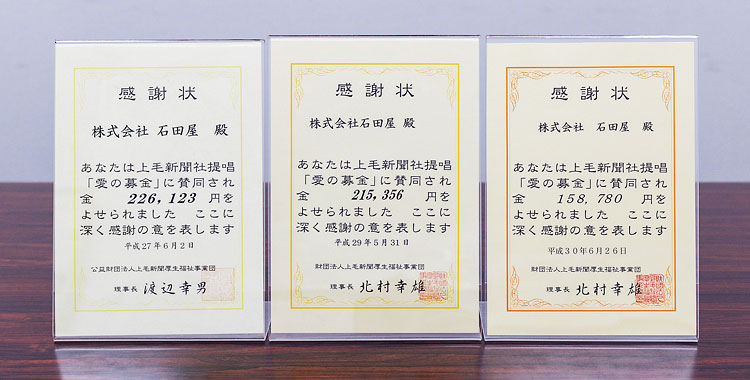 感謝状
株式会社 石田屋 殿
あなたは上毛新聞社提唱
「愛の募金」に賛同され
金 226,123 円を
よせられました ここに
深く感謝の意を表します
平成27年6月2日
公益財団法人上毛新聞厚生福祉事業団
理事長 渡辺幸男
感謝状
株式会社石田屋 殿
あなたは上毛新聞社提唱
「愛の募金」に賛同され
金 215,356 円を
よせられました ここに
深く感謝の意を表します
平成29年5月31日
財団法人上毛新聞厚生福祉事業団
理事長 北村幸雄
感謝状
株式会社 石田屋 殿
あなたは上毛新聞社提唱
「愛の募金」に賛同され
金 158,780 円を
よせられました ここに
深く感謝の意を表します
平成30年6月26日
財団法人上毛新聞厚生福祉事業団
理事長 北村幸雄